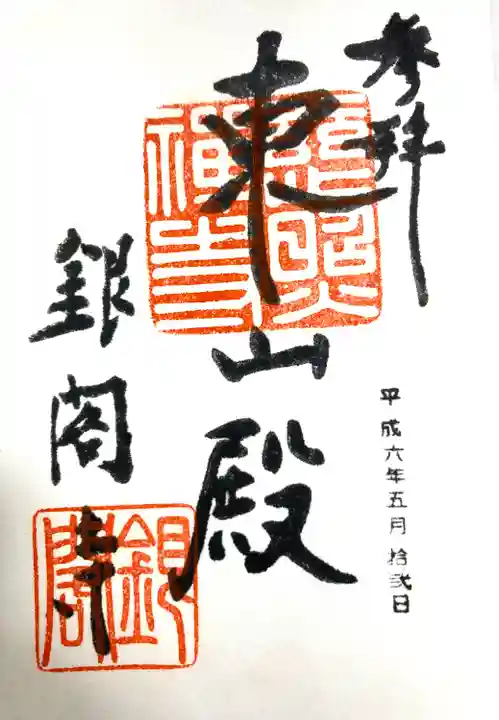 参拝
平成六年五月拾弐日
東山殿
慈照禅寺
銀閣寺
銀閣